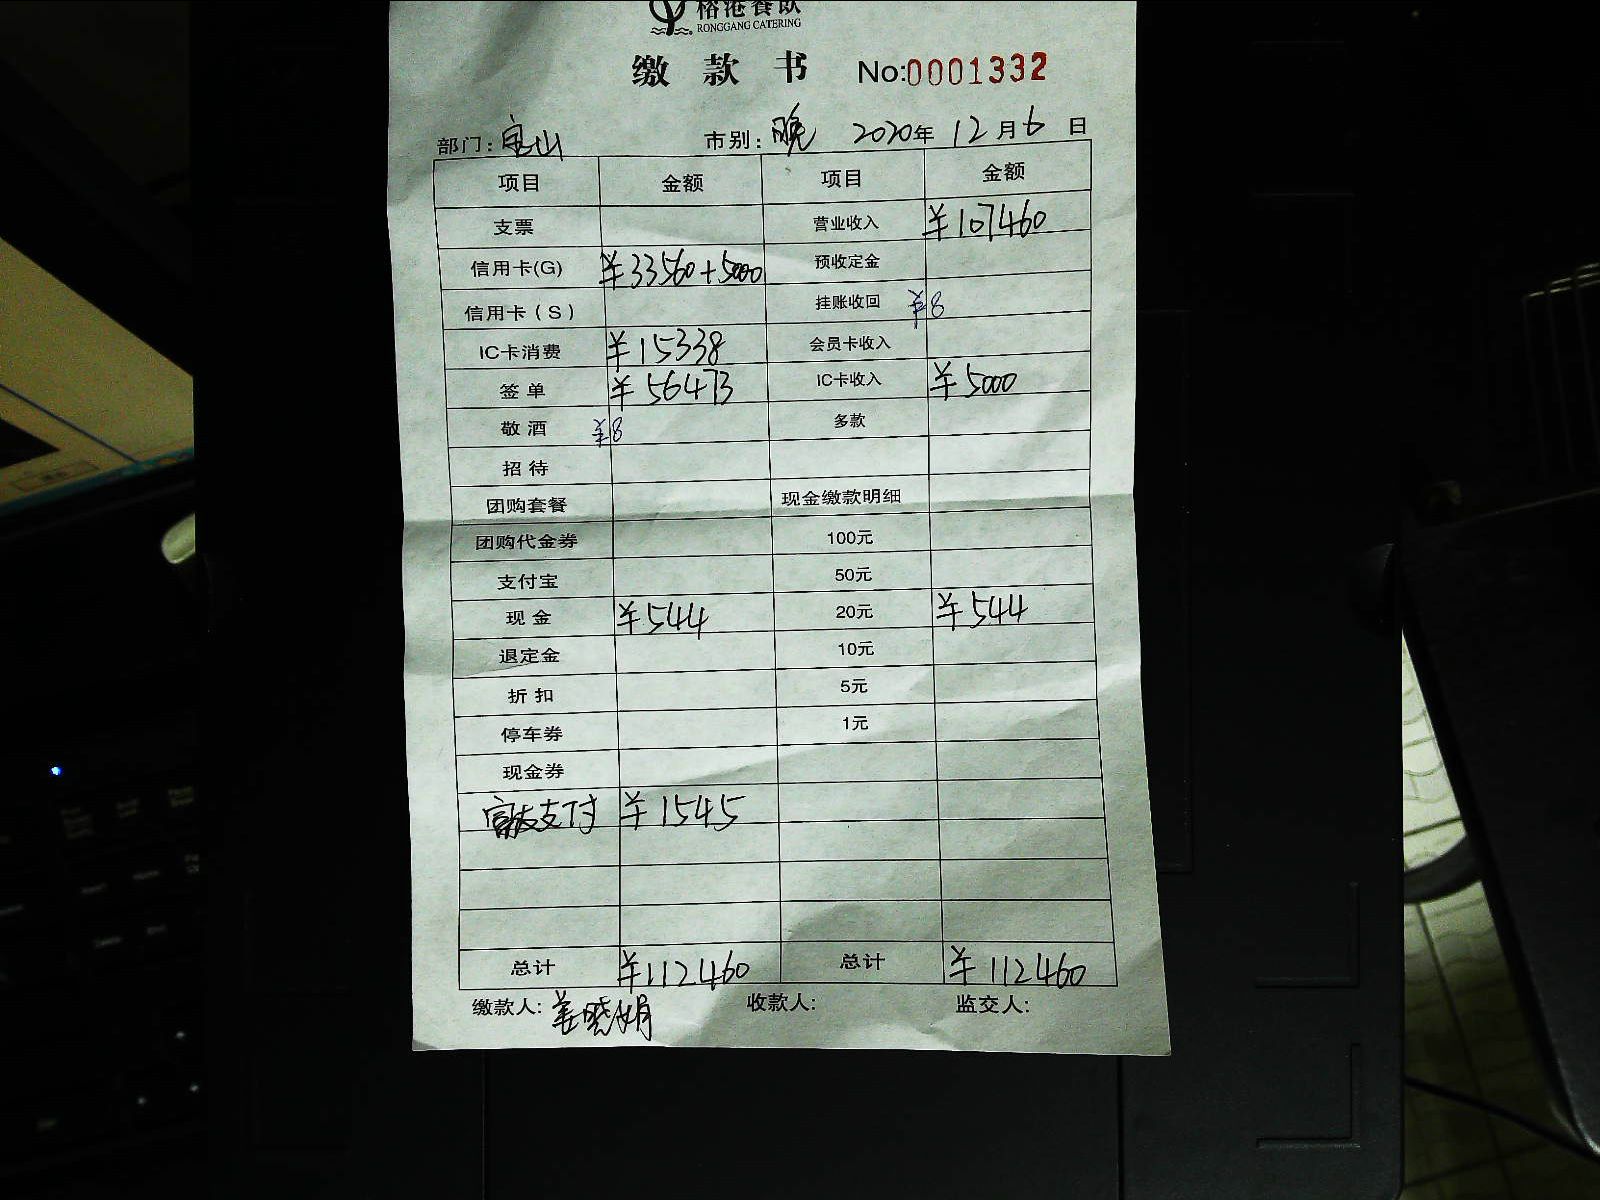 榕港餐饮
RONGGANG CATERING
缴款书 No:0001332
部门: 宝山 市别: 晚 2020年 12月 6日
项目 金额 项目 金额
支票 营业收入 ¥107460
信用卡(G) ¥33560+5000 预收定金
信用卡(S) 挂账收回 ¥8
IC卡消费 ¥15338 会员卡收入
签单 ¥56473 IC卡收入 ¥5000
敬酒 ¥8 多款
招待
团购套餐 现金缴款明细
团购代金券 100元
支付宝 50元
现金 ¥544 20元 ¥544
退定金 10元
折扣 5元
停车券 1元
现金券
富友支付 ¥1545
总计 ¥112460 总计 ¥112460
缴款人: 姜晓娟 收款人: 监交人: